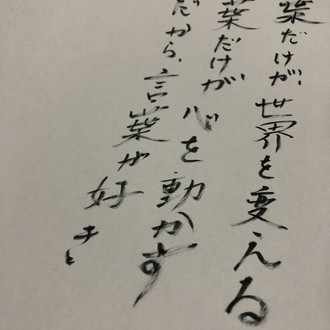 葉だけが、世界を変える
葉だけが心を動かす
だから、言葉が好き